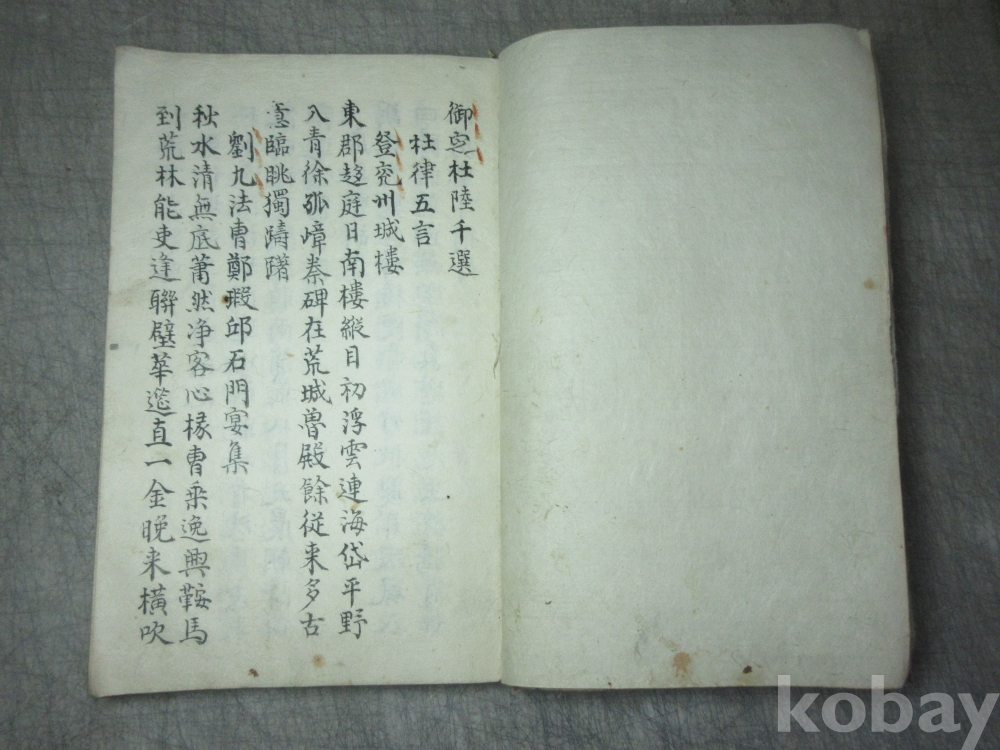 御定杜陸千選
杜律五言
登兖州城楼
東郡趍庭日南樓縱目初浮雲連海岱平野
入青徐孤嶂秦碑在荒城魯殿餘従来多古
意臨眺獨躊躇
劉九法曺鄭瑕邱石門宴集
秋水清無底蕭然净客心掾曺乘逸興鞍馬
到荒林能吏逢聯璧華筵直一金晚来橫吹
kobay